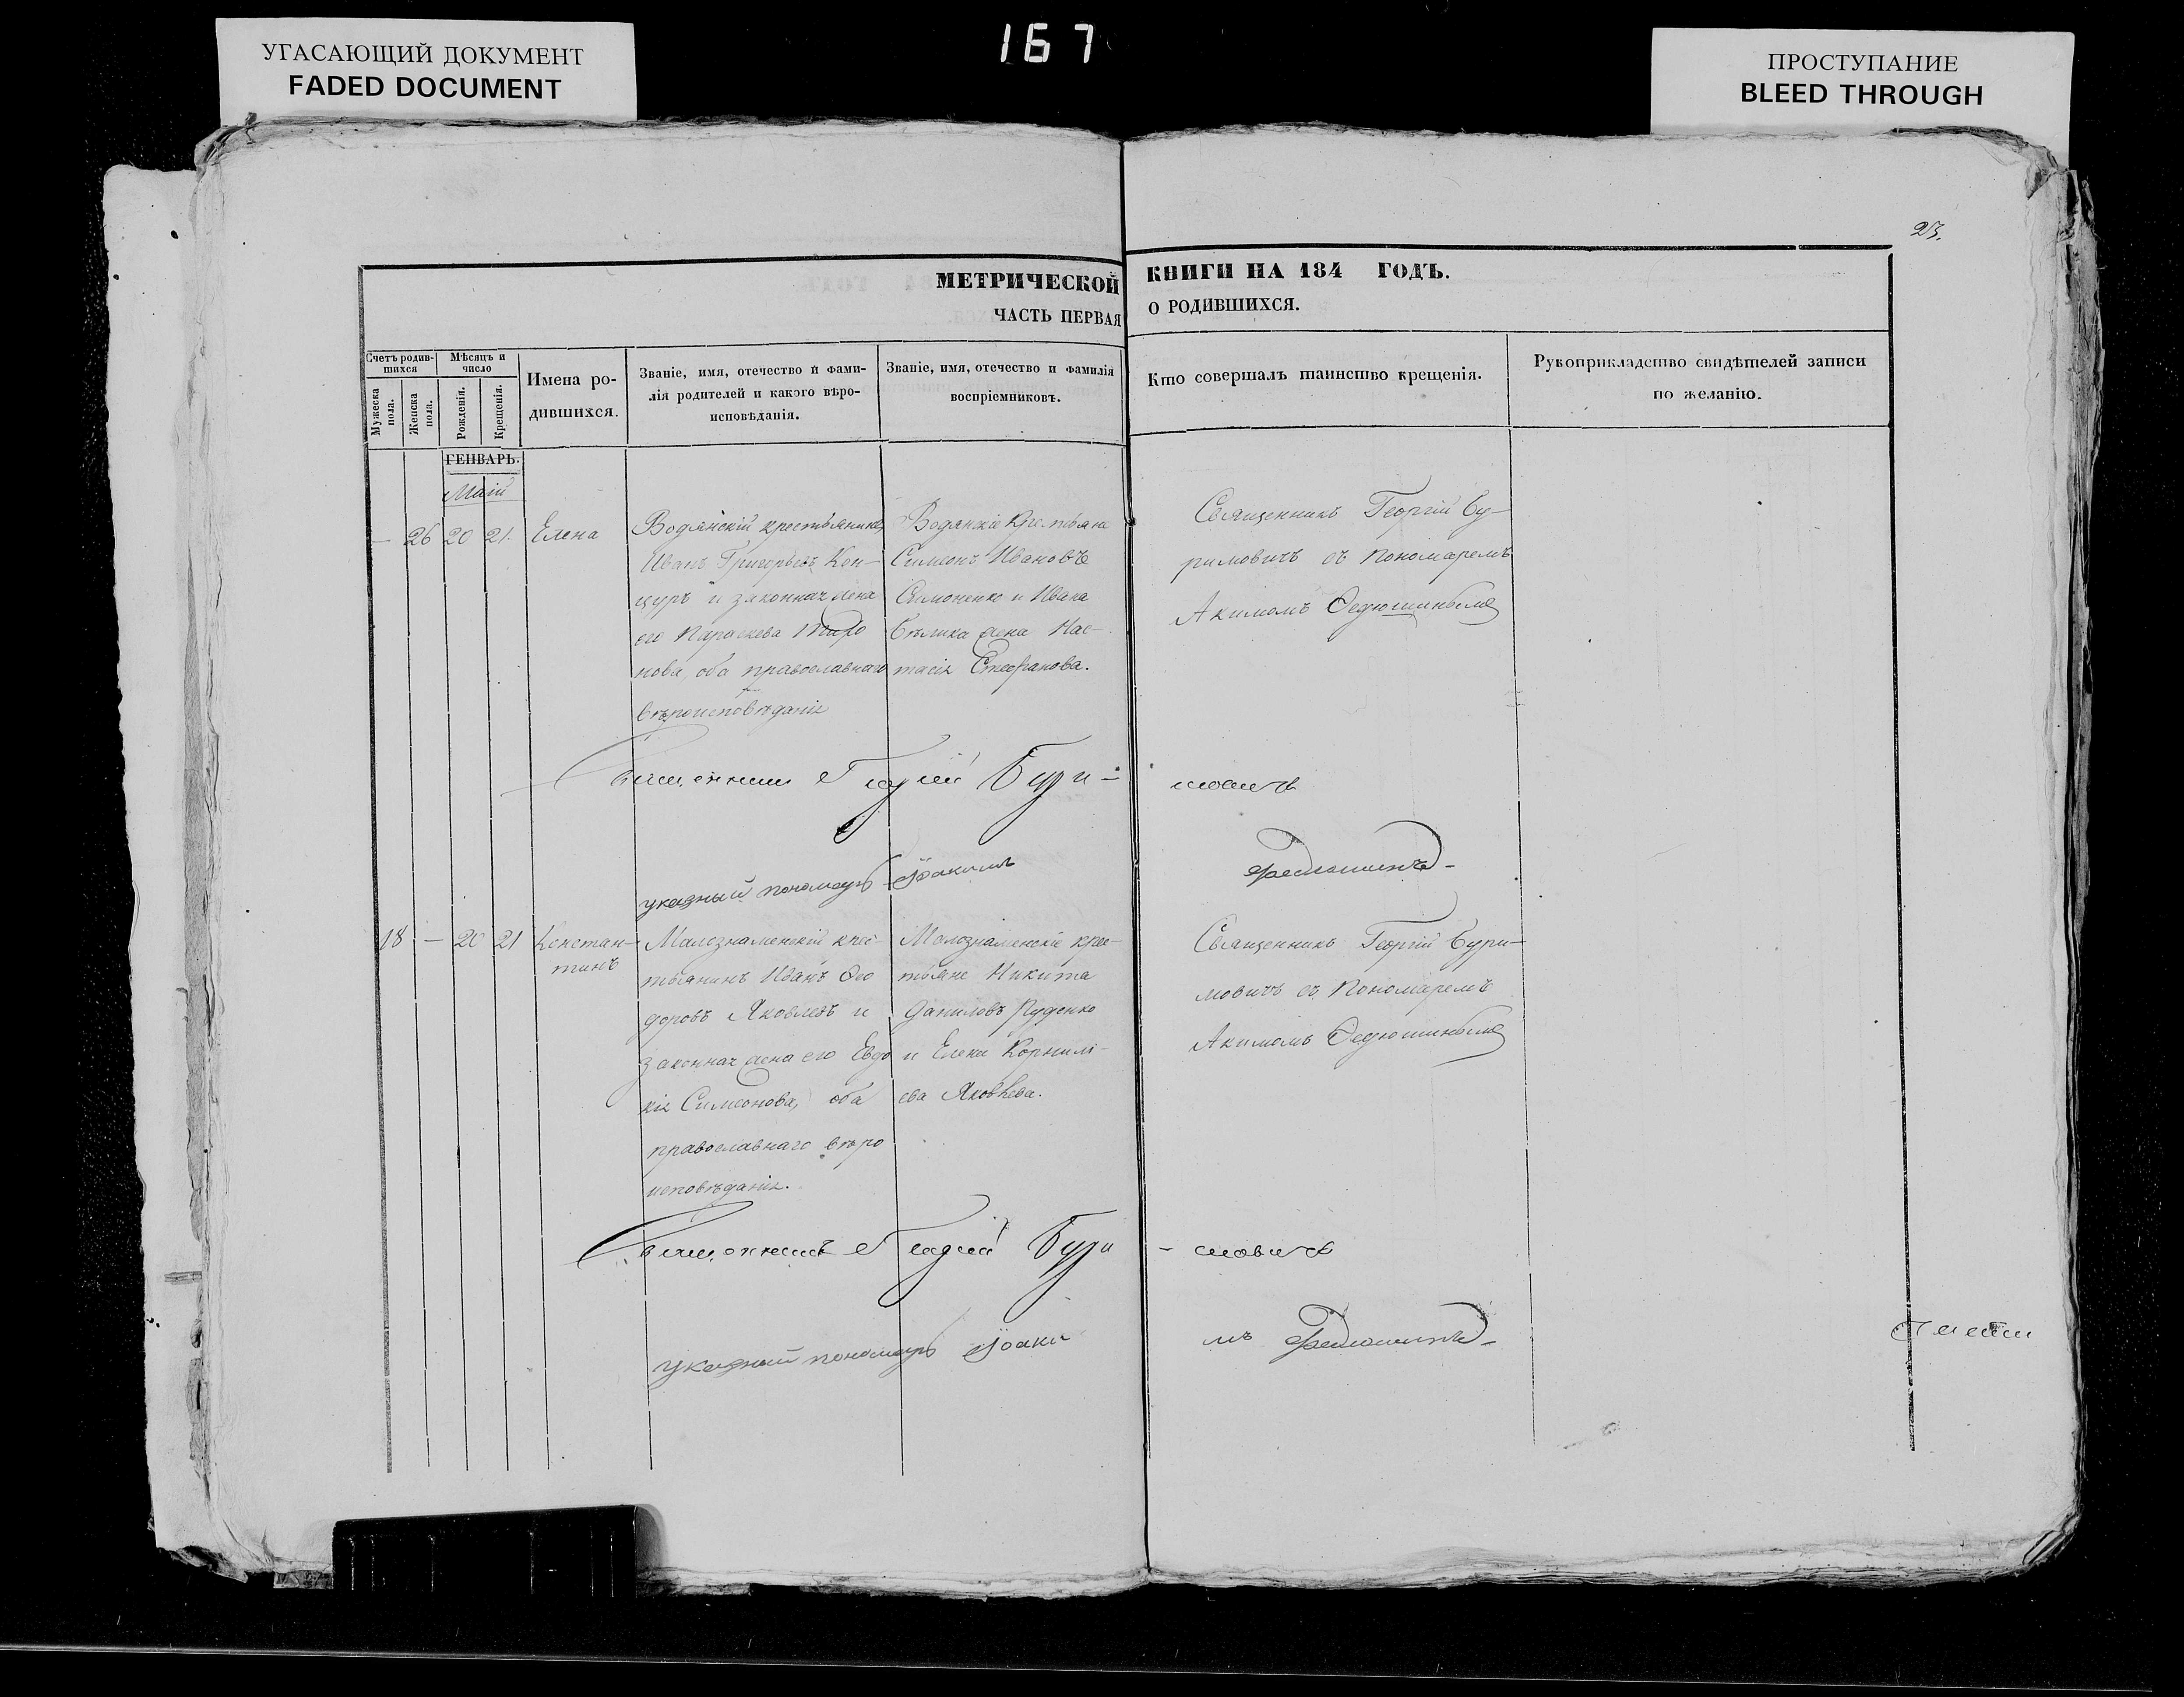 167
УГАСАЮЩИЙ ДОКУМЕНТ
FADED DOCUMENT
ПРОСТУПАНИЕ
BLEED THROUGH
23.
МЕТРИЧЕСКОЙ КНИГИ НА 184 ГОДЪ.
ЧАСТЬ ПЕРВАЯ О РОДИВШИХСЯ.
Счетъ родив-
шихся
Мужеска
пола.
Женска
пола.
Мѣсяцъ и
число
Рожденія.
Крещенія.
Имена ро-
дившихся.
Званіе, имя, отечество и фами-
лія родителей и какого вѣро-
исповѣданія.
Званіе, имя, отечество и фамилія
воспріемниковъ.
Кто совершалъ таинство крещенія.
Рукоприкладство свидѣтелей записи
по желанію.
ГЕНВАРЬ.
Маій
— 26 20 21. Елена
Водянскій крестьянинъ
Иванъ Григорьевъ Кон-
цуръ и законная жена
его Параскева
нова, оба православнаго
вѣроисповѣданія
Водянскіе крестьяне
Симеонъ Ивановъ
Симоненко и Ивана
Бѣлика жена Нас-
тасія Стефанова.
Священникъ Георгій Бу-
римовичъ съ пономаремъ
Акимомъ Ѳедюшинымъ
Священникъ Георгій Бури-
мовичъ
указный пономарь Іоакимъ
Федюшинъ
18 — 20 21 Констан-
тинъ
Малознаменскій крес-
тьянинъ Иванъ Ѳео
доровъ Яковлевъ и
законная жена его Евдо
кія Симеонова, оба
православнаго вѣро
исповѣданія.
Малознаменскіе крес-
тьяне Никита
Даниловъ Руденко
и Елена Корнилі-
ева Яковлева.
Священникъ Георгій Бури-
мовичъ съ пономаремъ
Акимомъ Ѳедюшинымъ
Священникъ Георгій Бури
- мовичъ
указный пономарь Іоаки
мъ Федюшинъ